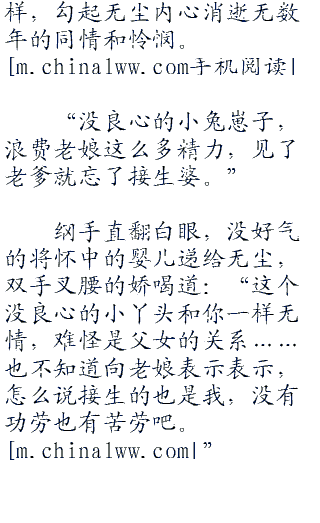 样，勾起无尘内心消逝无数
年的同情和怜悯。
[m.chinalww.com手机阅读|
“没良心的小兔崽子，
浪费老娘这么多精力，见了
老爹就忘了接生婆。”
纲手直翻白眼，没好气
的将怀中的婴儿递给无尘，
双手叉腰的娇喝道：“这个
没良心的小丫头和你一样无
情，难怪是父女的关系……
也不知道向老娘表示表示，
怎么说接生的也是我，没有
功劳也有苦劳吧。
[m.chinalww.com|”